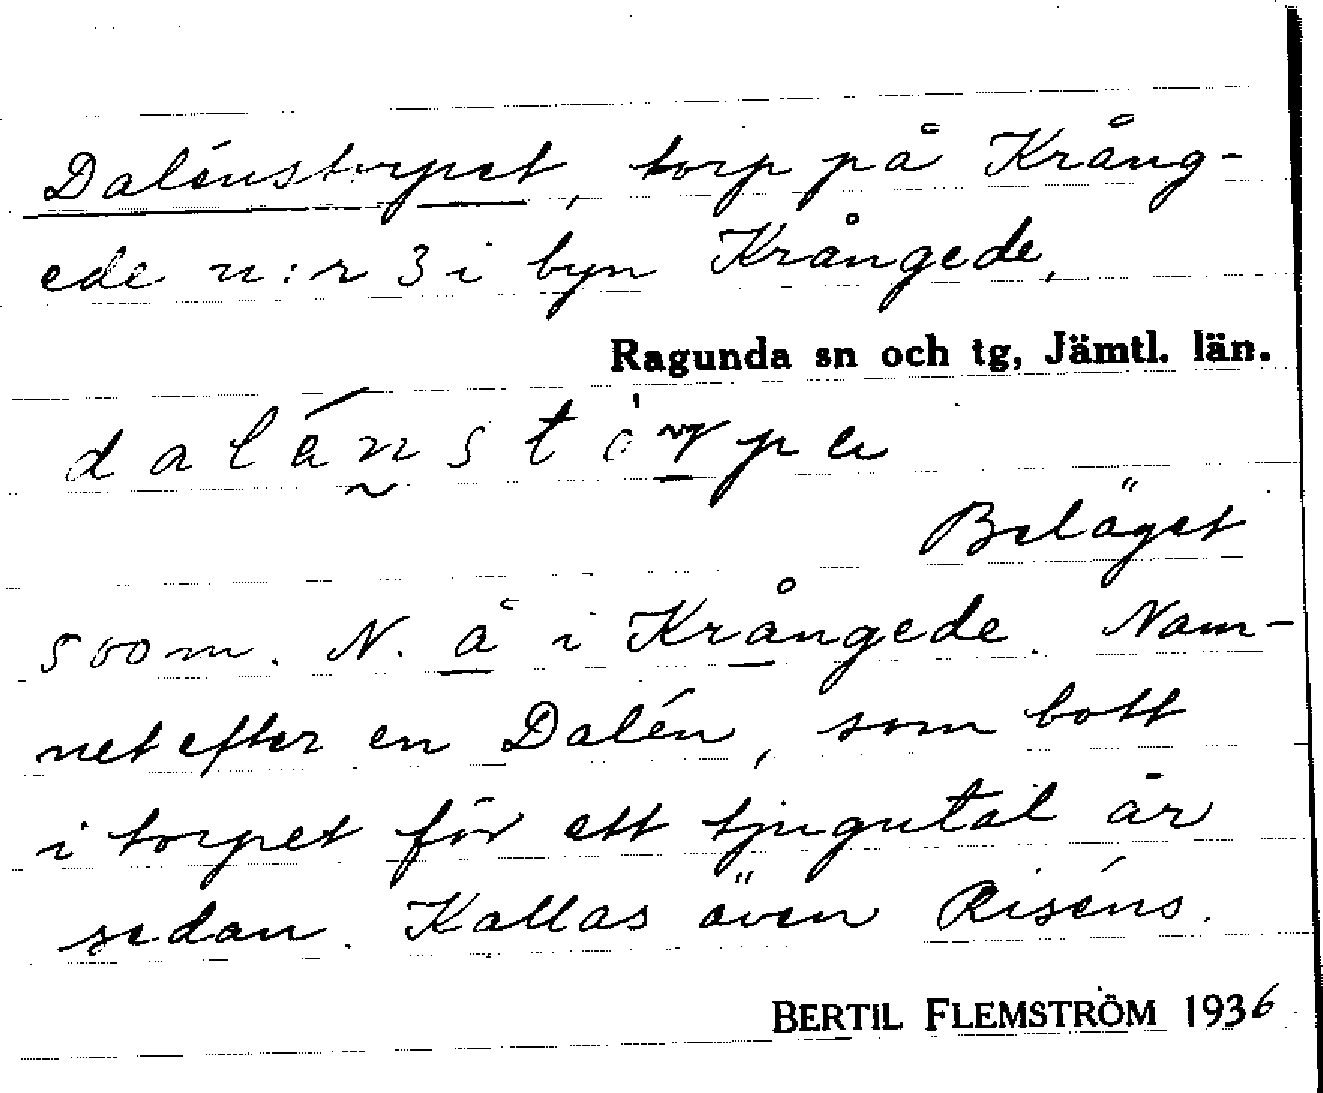 Dalénstorpet, torp på Kräng-
ede n:r 3 i byn Krångede,
Ragunda sn och tg, Jämtl. län.
Beläget
500 m. N. å i Krångede. Nam-
net efter en Dalén, som bott
i torpet för ett tjugutal år
sedan. Kallas även Riséns.
BERTIL FLEMSTRÖM 1936